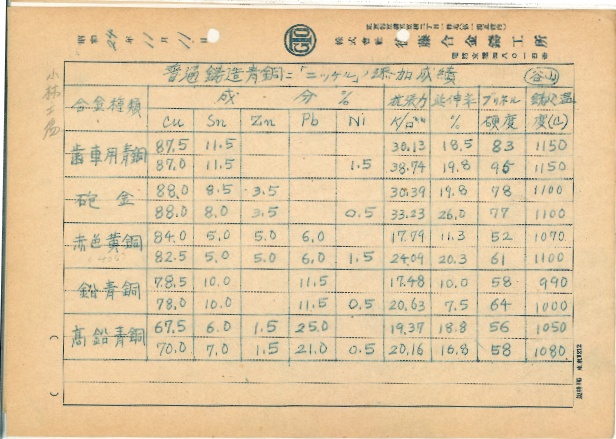 昭和24年11月11日
GTO
株式会社 後藤合金器工所
小林工場
普通鋳造青銅ニ「ニッケル」添加成績
谷山
合金種類 成分% 抗張力 延伸率 ブリネル 鋳込温
Cu Sn Zn Pb Ni K/□mm % 硬度 度(C)
歯車用青銅 87.5 11.5 30.13 18.5 83 1150
87.0 11.5 1.5 38.74 19.8 95 1150
砲金 88.0 8.5 3.5 30.39 19.8 78 1100
88.0 8.0 3.5 0.5 33.23 26.0 77 1100
赤色黄銅 84.0 5.0 5.0 6.0 17.79 11.3 52 1070
82.5 5.0 5.0 6.0 1.5 24.09 20.3 61 1100
鉛青銅 78.5 10.0 11.5 17.48 10.0 58 990
78.0 10.0 11.5 0.5 20.63 7.5 64 1000
高鉛青銅 67.5 6.0 1.5 25.0 19.37 18.8 56 1050
70.0 7.0 1.5 21.0 0.5 20.16 16.8 58 1080